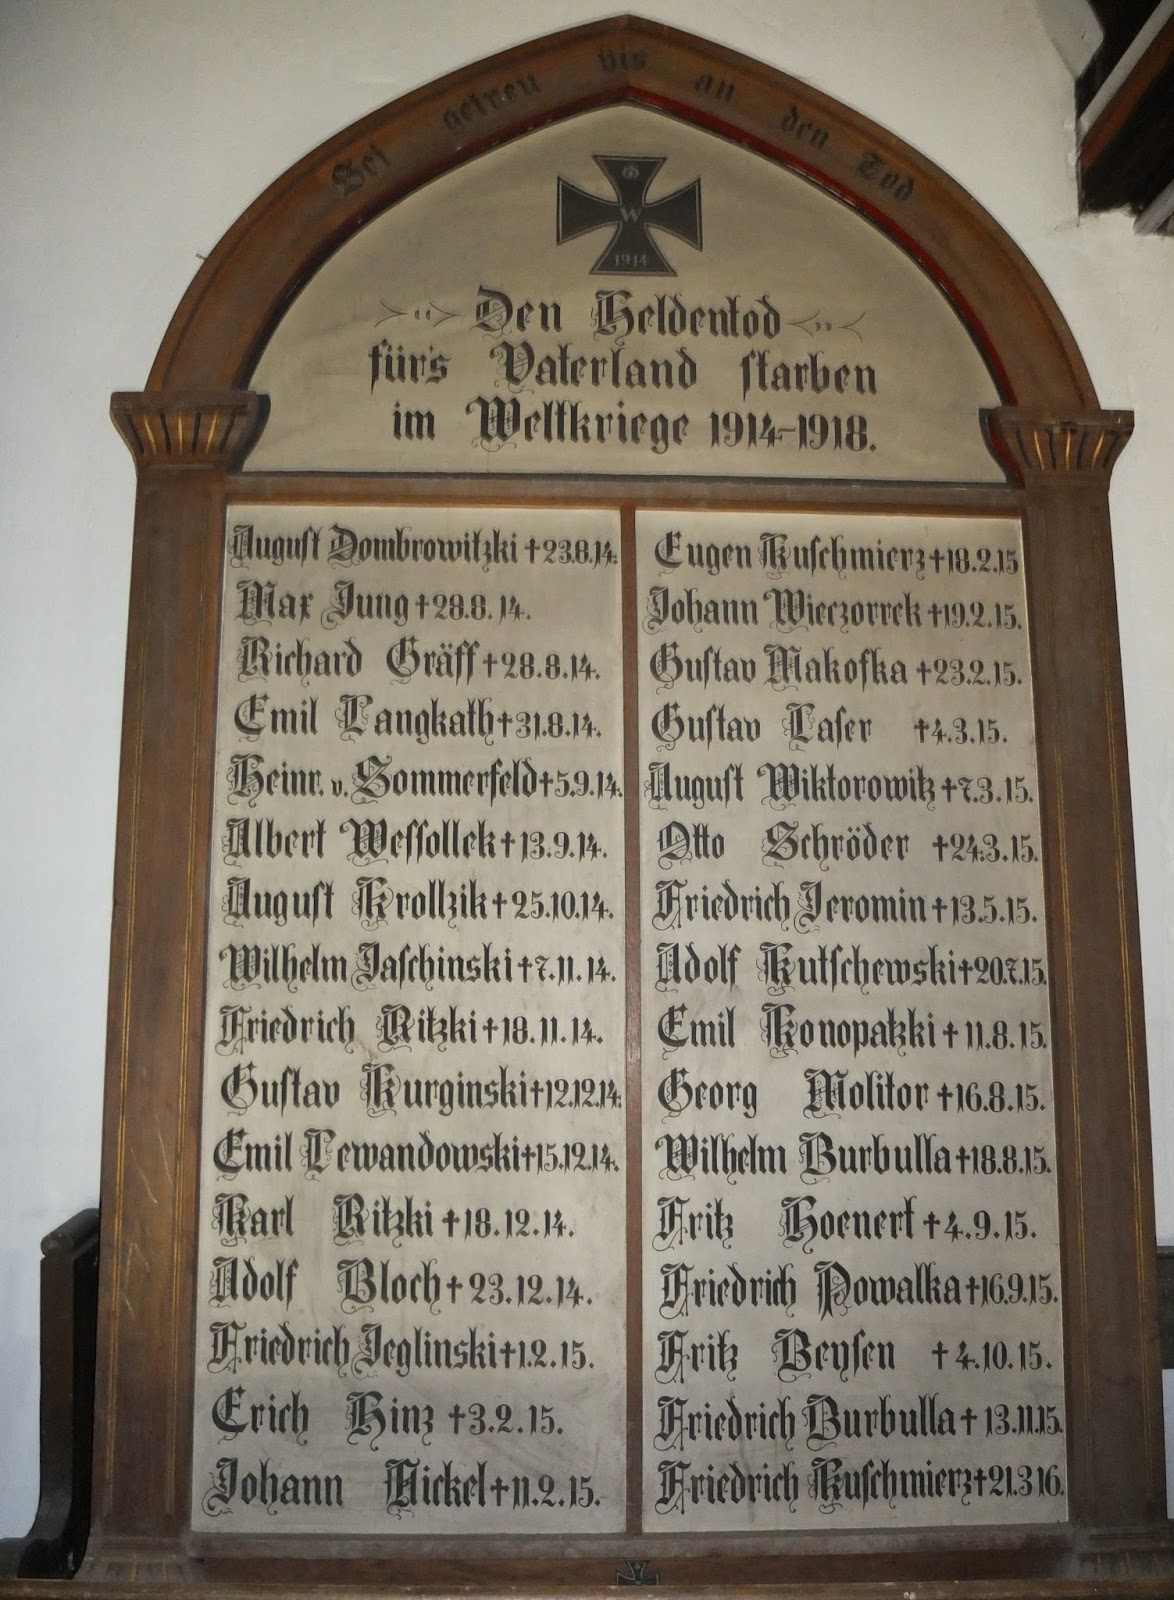 Sei getreu bis an den Tod
W
1914
Den Heldentod
für's Vaterland starben
im Weltkriege 1914-1918.
August Dombrowitzki †23.8.14.
Max Jung †28.8.14.
Richard Gräff †28.8.14.
Emil Langkath †31.8.14.
Heinr. v. Sommerfeld †5.9.14.
Albert Wessollek †13.9.14.
August Krollzik †25.10.14.
Wilhelm Jaschinski †7.11.14.
Friedrich Ritzki †18.11.14.
Gustav Kurginski †12.12.14.
Emil Lewandowski †15.12.14.
Karl Ritzki †18.12.14.
Adolf Bloch †23.12.14.
Friedrich Jeglinski †1.2.15.
Erich Hinz †3.2.15.
Johann Nickel †11.2.15.
Eugen Kuschmierz †18.2.15
Johann Wieczorrek †19.2.15.
Gustav Makofka †23.2.15.
Gustav Laser †4.3.15.
August Wiktorowitz †7.3.15.
Otto Schröder †24.3.15.
Friedrich Jeromin †13.5.15.
Adolf Kutschewski †20.7.15.
Emil Konopatzki †11.8.15.
Georg Molitor †16.8.15.
Wilhelm Burbulla †18.8.15.
Fritz Hoenert †4.9.15.
Friedrich Powalka †16.9.15.
Fritz Beysen †4.10.15.
Friedrich Burbulla †13.11.15.
Friedrich Kuschmierz †21.3 16.